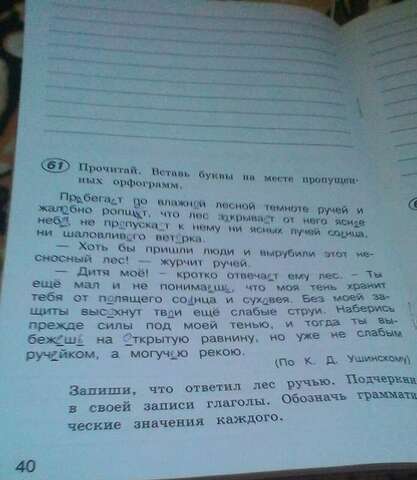 61 Прочитай. Вставь буквы на месте пропущен-
ных орфограмм.
Пробегает во влажной лесной темноте ручей и
жалобно ропщет, что лес закрывает от него ясное
небо, не пропускает к нему ни ясных лучей солнца,
ни шаловливого ветерка.
— Хоть бы пришли люди и вырубили этот не-
сносный лес! — журчит ручей.
— Дитя моё! — кротко отвечает ему лес. — Ты
ещё мал и не понимаешь, что моя тень хранит
тебя от палящего солнца и суховея. Без моей за-
щиты высохнут твои ещё слабые струи. Наберись
прежде силы под моей тенью, и тогда ты вы-
бежишь на открытую равнину, но уже не слабым
ручейком, а могучею рекою.
(По К. Д. Ушинскому)
Запиши, что ответил лес ручью. Подчеркни
в своей записи глаголы. Обозначь граммати
ческие значения каждого.
40